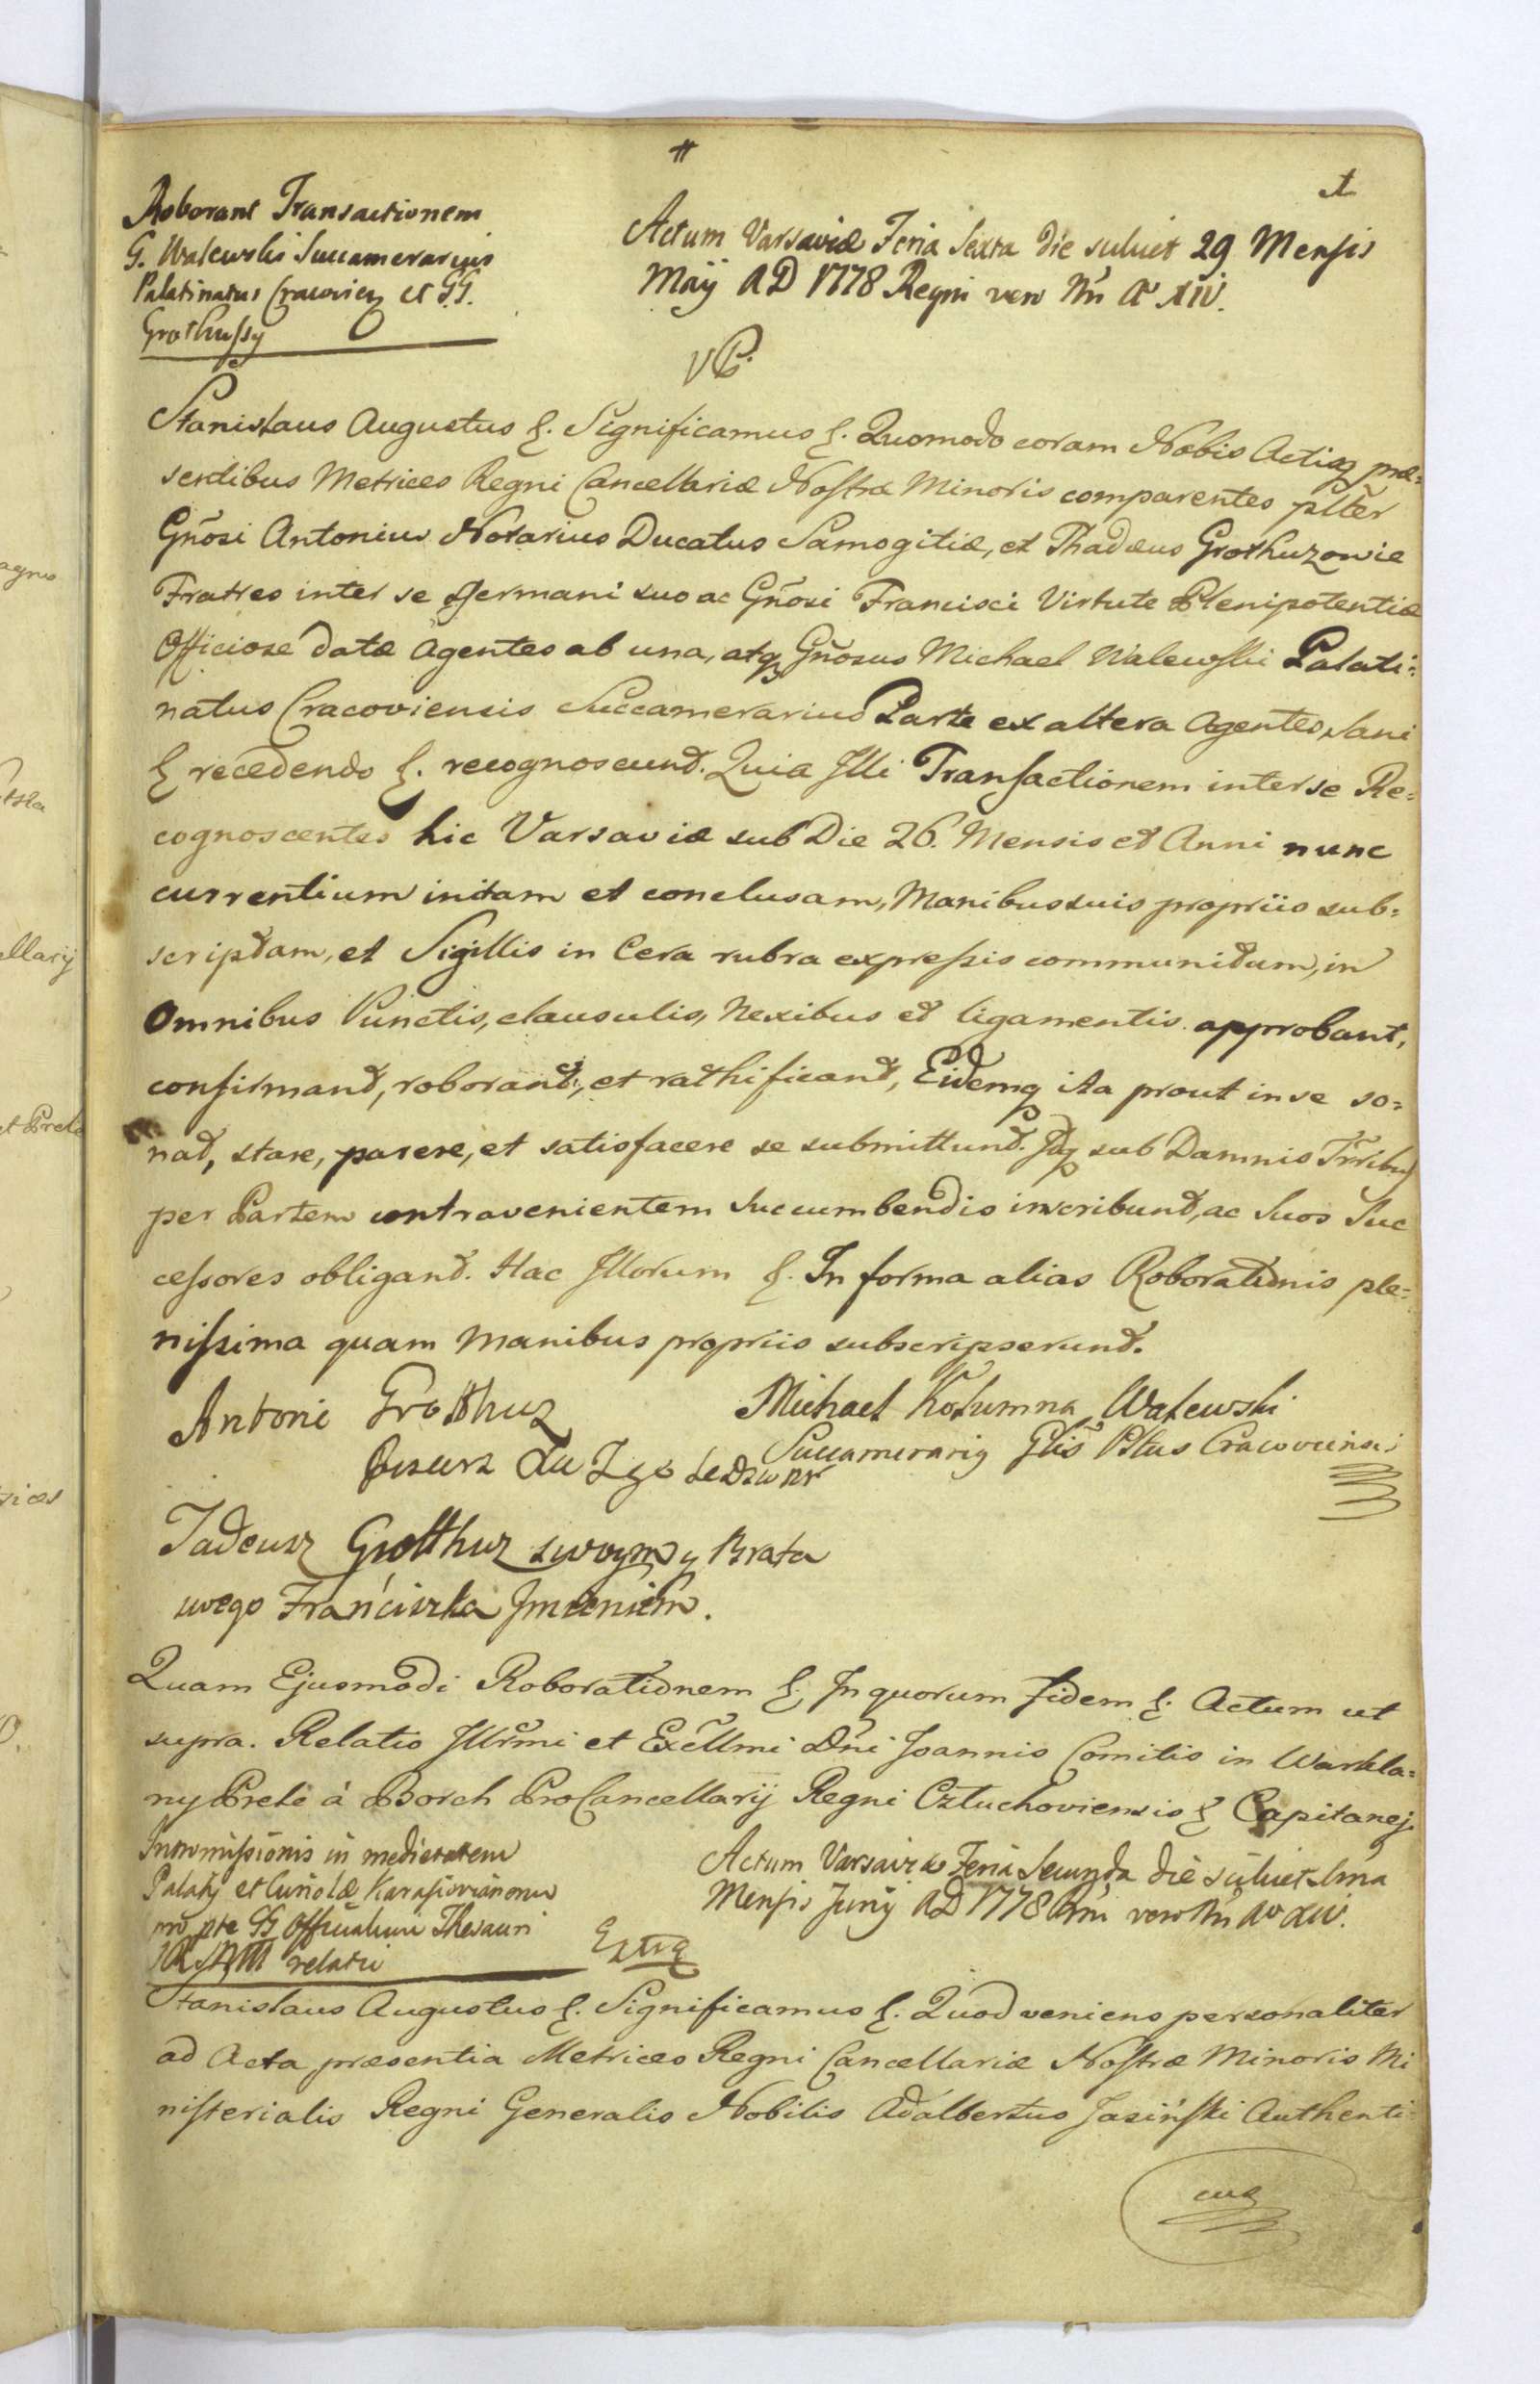 Roborant Transactionem
G. Walewski Succamerarius
Palatinatus Cracovien et GG.
Grothussy
Actum Varsaviæ Feria Sexta die scilicet 29 Mensis
Maÿ A D 1778 Regni vero Nri Aº XIV.
VC.
Stanislaus Augustus &. Significamus &. Quomodo coram Nobis Actisq præ=
sentibus Metrices Regni Cancellariæ Nostræ Minoris comparentes plter
Gnosi Antonius Notarius Ducatus Samogitiæ, et Thadæus Grothuzowie
Fratres inter se germani suo ac Gnosi Francisci Virtute Plenipotentiæ
Officiose datæ Agentes ab una, atq Gnosus Michael Walewski Palati=
natus Cracoviensis Succamerarius Parte ex altera Agentes, Sani
& recedendo &. recognoscunt. Quia Illi Transactionem inter se Re=
cognoscentes hic Varsaviæ sub Die 26. Mensis et Anni nunc
currentium initam et conclusam, Manibus suis propriis sub=
scriptam, et Sigillis in Cera rubra expressis communitam, in
Omnibus Punctis, clausulis, Nexibus et ligamentis approbant,
confirmant, roborant, et rathificant, Eidemq ita prout in se so=
nat, stare, parere, et satisfacere se submittunt. Idq sub Damnis Trribus
per Partem contravenientem succumbendis inscribunt, ac Suos Suc
cessores obligant. Hac Illorum &. In forma alias Roborationis ple=
nissima quam Manibus propriis subscripserunt.
Antoni Grotthuz
Pisarz
Michael Kolumna Walewski
Succamerariq Glis Pltus Cracoviensis
Tadeusz Grotthuz swoym y Brata
swego Franciszka Imieniem.
Quam Ejusmodi Roborationem & In quorum fidem &. Actum ut
supra. Relatio Illrmi et Excllmi Dni Joannis Comitis in Warkla=
ny Prele à Borch ProCancellarij Regni Cztuchoviensis & Capitanej.
Intromissionis in medietatem
Palatÿ et Curiolæ
pte GG Officialium Thesauri
relatio
Actum Varsaviæ Feria Secunda die scilicet 1ma
Mensis Junÿ A D 1778 Rni vero Nri Aº XIV.
Stanislaus Augustus &. Significamus &. Quod veniens personaliter
ad Acta præsentia Metrices Regni Cancellariæ Nostræ Minoris Mi
nisterialis Regni Generalis Nobilis Adalbertus Jasiński Authenti=
cus